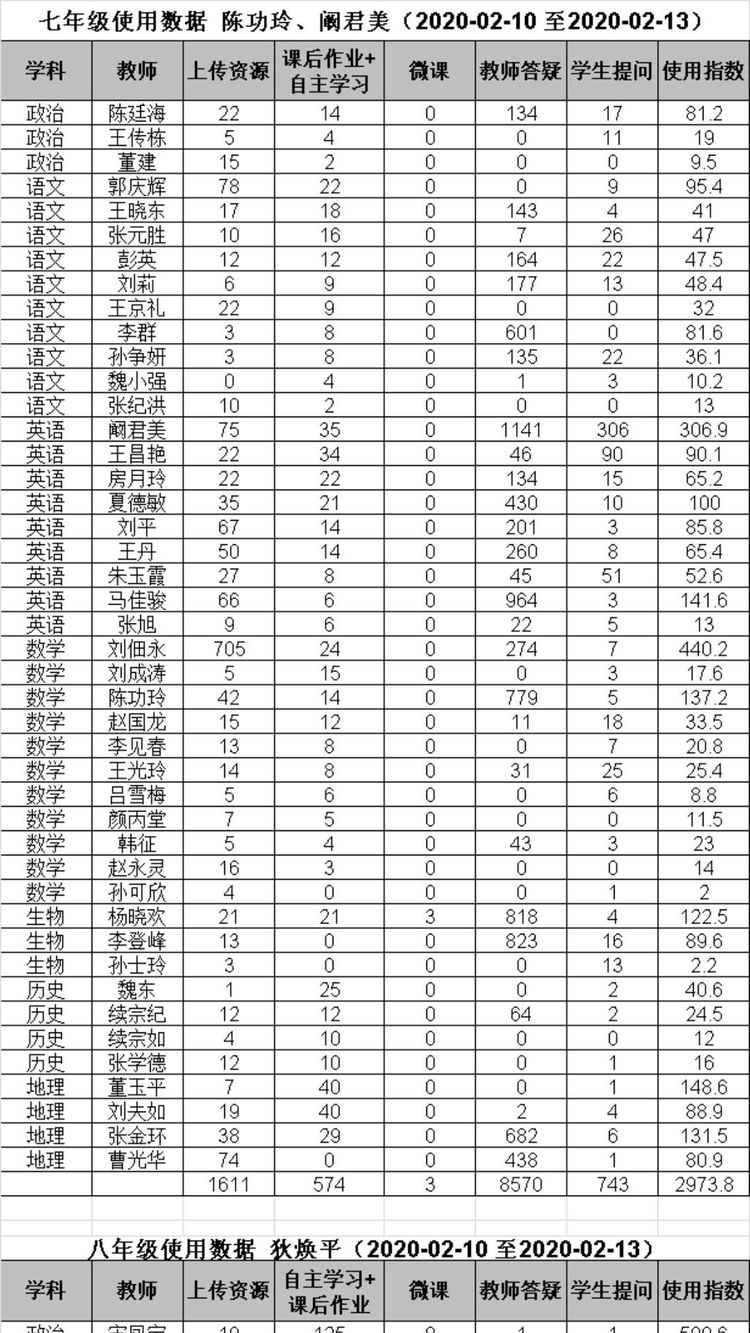 七年级使用数据 陈功玲、阚君美（2020-02-10 至2020-02-13）
学科 教师 上传资源 课后作业+自主学习 微课 教师答疑 学生提问 使用指数
政治 陈廷海 22 14 0 134 17 81.2
政治 王传栋 5 4 0 0 11 19
政治 董建 15 2 0 0 0 9.5
语文 郭庆辉 78 22 0 0 9 95.4
语文 王晓东 17 18 0 143 4 41
语文 张元胜 10 16 0 7 26 47
语文 彭英 12 12 0 164 22 47.5
语文 刘莉 6 9 0 177 13 48.4
语文 王京礼 22 9 0 0 0 32
语文 李群 3 8 0 601 0 81.6
语文 孙争妍 3 8 0 135 22 36.1
语文 魏小强 0 4 0 1 3 10.2
语文 张纪洪 10 2 0 0 0 13
英语 阚君美 75 35 0 1141 306 306.9
英语 王昌艳 22 34 0 46 90 90.1
英语 房月玲 22 22 0 134 15 65.2
英语 夏德敏 35 21 0 430 10 100
英语 刘平 67 14 0 201 3 85.8
英语 王丹 50 14 0 260 8 65.4
英语 朱玉霞 27 8 0 45 51 52.6
英语 马佳骏 66 6 0 964 3 141.6
英语 张旭 9 6 0 22 5 13
数学 刘佃永 705 24 0 274 7 440.2
数学 刘成涛 5 15 0 0 3 17.6
数学 陈功玲 42 14 0 779 5 137.2
数学 赵国龙 15 12 0 11 18 33.5
数学 李见春 13 8 0 0 7 20.8
数学 王光玲 14 8 0 31 25 25.4
数学 吕雪梅 5 6 0 0 6 8.8
数学 颜丙堂 7 5 0 0 0 11.5
数学 韩征 5 4 0 43 3 23
数学 赵永灵 16 3 0 0 0 14
数学 孙可欣 4 0 0 0 1 2
生物 杨晓欢 21 21 3 818 4 122.5
生物 李登峰 13 0 0 823 16 89.6
生物 孙士玲 3 0 0 0 13 2.2
历史 魏东 1 25 0 0 2 40.6
历史 续宗纪 12 12 0 64 2 24.5
历史 续宗如 4 10 0 0 0 12
历史 张学德 12 10 0 0 1 16
地理 董玉平 7 40 0 0 1 148.6
地理 刘夫如 19 40 0 2 4 88.9
地理 张金环 38 29 0 682 6 131.5
地理 曹光华 74 0 0 438 1 80.9
1611 574 3 8570 743 2973.8
八年级使用数据 狄焕平（2020-02-10 至2020-02-13）
学科 教师 上传资源 自主学习+课后作业 微课 教师答疑 学生提问 使用指数
政治